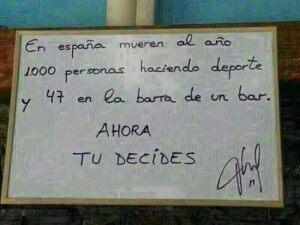 En españa mueren al año
1.000 personas haciendo deporte
y 47 en la barra de un bar.
AHORA
TU DECIDES